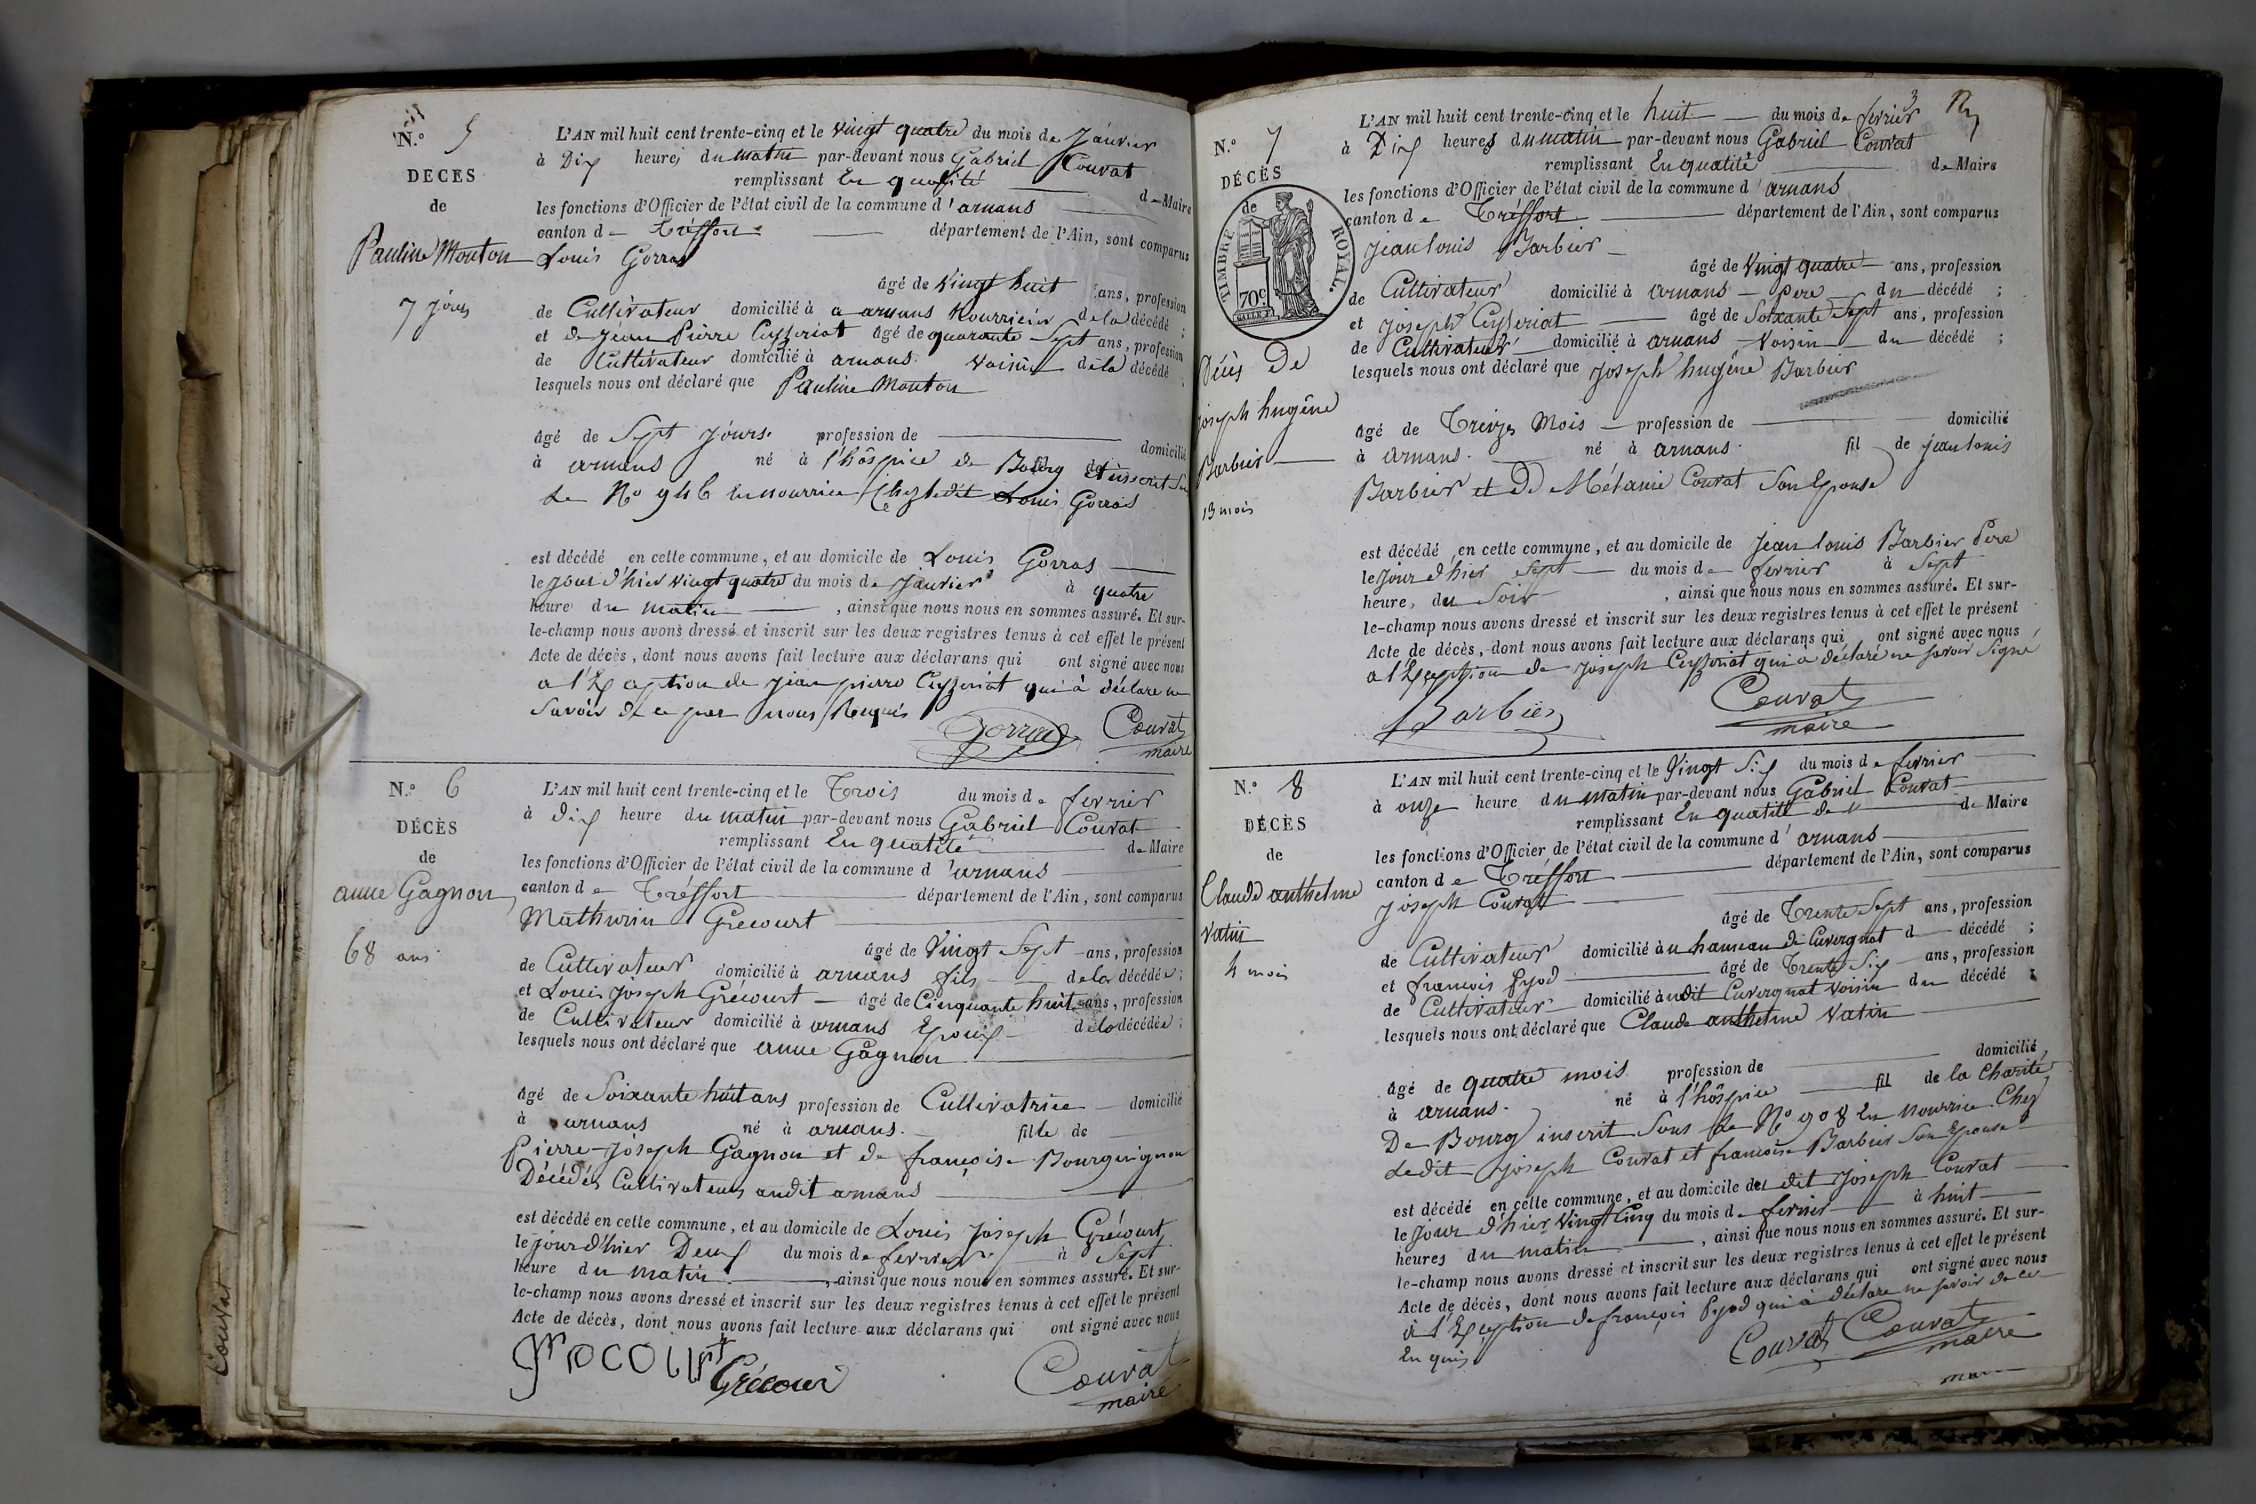 N.° 5
DÉCÈS
de
Pauline Mouton
7 jours
L'AN mil huit cent trente-cinq et le vingt quatre du mois de Janvier
à Dix heures du matin par-devant nous Gabriel Couvat
remplissant En qualité de Maire
les fonctions d'Officier de l'état civil de la commune d'arnans
canton de Tréffort département de l'Ain, sont comparus
Louis Gorras
âgé de Vingt huit ans, profession
de Cultivateur domicilié à a arnans nourricier de la décédé ;
et de Jean Pierre Ceyzeriat âgé de quarante Sept ans, profession
de Cultivateur domicilié à arnans voisin de la décédé ;
lesquels nous ont déclaré que Pauline Mouton
âgé de Sept Jours profession de domicilié
à arnans né à l'hôspice de Bourg et inscrit Su
le No 946 en nourrice Chez ledit Louis Gorras
est décédé en cette commune, et au domicile de Louis Gorras
le Jour d'hier vingt quatre du mois de Janvier à quatre
heure du matin, ainsi que nous nous en sommes assuré. Et sur-
le-champ nous avons dressé et inscrit sur les deux registres tenus à cet effet le présent
Acte de décès, dont nous avons fait lecture aux déclarans qui ont signé avec nous
a l'Exception de jean pierre Ceyzeriat qui à déclaré ne
Savoir de ce par nous Requis
Couvat
maire
N.° 6
DÉCÈS
de
anne Gagnon
68 ans
L'AN mil huit cent trente-cinq et le Trois du mois de fevrier
à dix heure du matin par-devant nous Gabriel Couvat
remplissant En qualité de Maire
les fonctions d'Officier de l'état civil de la commune d'arnans
canton de Tréffort département de l'Ain, sont comparus
Mathurin Grécourt
âgé de Vingt Sept ans, profession
de Cultivateur domicilié à arnans fils de la décédée ;
et Louis Joseph Grécourt âgé de Cinquante huit ans, profession
de Cultivateur domicilié à arnans Epoux de la décédée ;
lesquels nous ont déclaré que anne Gagnon
âgé de Soixante huit ans profession de Cultivatrice domicilié
à arnans né à arnans. fille de
Pierre-Joseph Gagnon et de françoise Bourguignon
Décédés Cultivateurs audit arnans
est décédé en cette commune, et au domicile de Louis Joseph Grécourt
le jour d'hier Deux du mois de fevrier à Sept
heure du matin, ainsi que nous nous en sommes assuré. Et sur-
le-champ nous avons dressé et inscrit sur les deux registres tenus à cet effet le présent
Acte de décès, dont nous avons fait lecture aux déclarans qui ont signé avec nous
Grécour
Couvat
maire
Couvat
3
N.° 7
DÉCÈS
de
TIMBRE ROYAL.
70c.
Décès De
joseph hugêne
Barbier
13 mois
L'AN mil huit cent trente-cinq et le huit du mois de fevrier
à Dix heures du matin par-devant nous Gabriel Couvat
remplissant En qualité de Maire
les fonctions d'Officier de l'état civil de la commune d'arnans
canton de Tréffort département de l'Ain, sont comparus
Jean louis Barbier
âgé de Vingt quatre ans, profession
de Cultivateur domicilié à arnans pere du décédé ;
et joseph Ceyzeriat âgé de Soixante Sept ans, profession
de Cultivateur domicilié à arnans Voisin du décédé ;
lesquels nous ont déclaré que joseph hugêne Barbier
âgé de Treize Mois profession de domicilié
à arnans. né à arnans. fil de jean louis
Barbier et De Mélanie Couvat Son Epouse
est décédé en cette commune, et au domicile de Jean louis Barbier Pere
le Jour d'hier Sept du mois de fevrier à Sept
heure, du Soir, ainsi que nous nous en sommes assuré. Et sur-
le-champ nous avons dressé et inscrit sur les deux registres tenus à cet effet le présent
Acte de décès, dont nous avons fait lecture aux déclarans qui ont signé avec nous
a l'Exception de joseph Ceyzeriat qui a déclaré ne savoir Signé
Barbier
Couvat
maire
N.° 8
DÉCÈS
de
Claude anthelme
Vatin
4 mois
L'AN mil huit cent trente-cinq et le Vingt Six du mois de fevrier
à onze heure du matin par-devant nous Gabriel Couvat
remplissant En qualité de de Maire
les fonctions d'Officier de l'état civil de la commune d'arnans
canton de Tréffort département de l'Ain, sont comparus
joseph Couvat
âgé de Trente Sept ans, profession
de Cultivateur domicilié à u hameau de Cuvergnat d décédé ;
et françois Pyod âgé de Trente Six ans, profession
de Cultivateur domicilié à udit Cuvergnat voisin du décédé ;
lesquels nous ont déclaré que Claude anthelme Vatin
âgé de quatre mois profession de domicilié
à arnans. né à l'hôspice fil de la Charité
De Bourg inscrit Sous le No 908 en nourrice Chez
ledit Joseph Couvat et françoise Barbier Son Epouse
est décédé en cette commune, et au domicile du dit Joseph Couvat
le Jour d'hier Vingt Cinq du mois de fevrier à huit
heures du matin, ainsi que nous nous en sommes assuré. Et sur-
le-champ nous avons dressé et inscrit sur les deux registres tenus à cet effet le présent
Acte de décès, dont nous avons fait lecture aux déclarans qui ont signé avec nous
à l'Exception de françois Pyod qui à déclaré ne savoir de ce
En quis
Couvat Couvat
maire